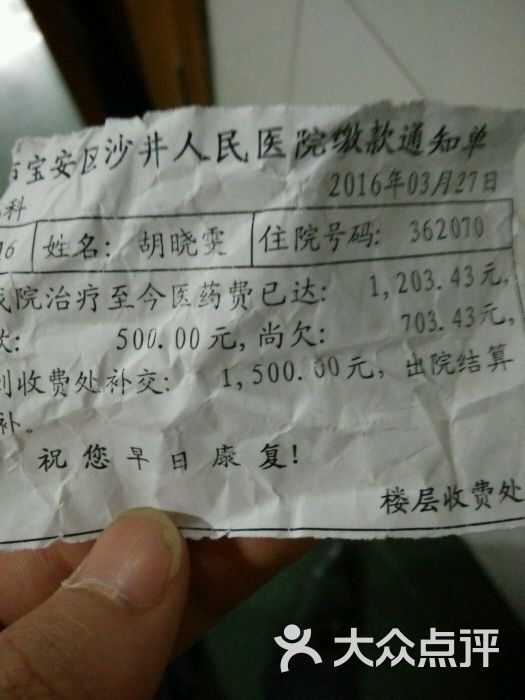 宝安区沙井人民医院缴款通知单
2016年03月27日
科
姓名: 胡晓雯 住院号码: 362070
院治疗至今医药费已达: 1,203.43元,
500.00元, 尚欠: 703.43元,
收费处补交: 1,500.00元, 出院结算
补。
祝您早日康复!
楼层收费处
大众点评